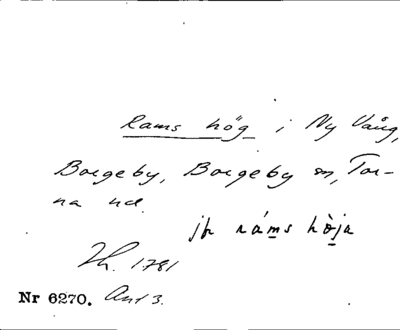 Rams hög i Ny Vång,
Borgeby, Borgeby sn, Tor-
na hd.
jfr ráms hòja
1781
Nr 6270. Ant 3.